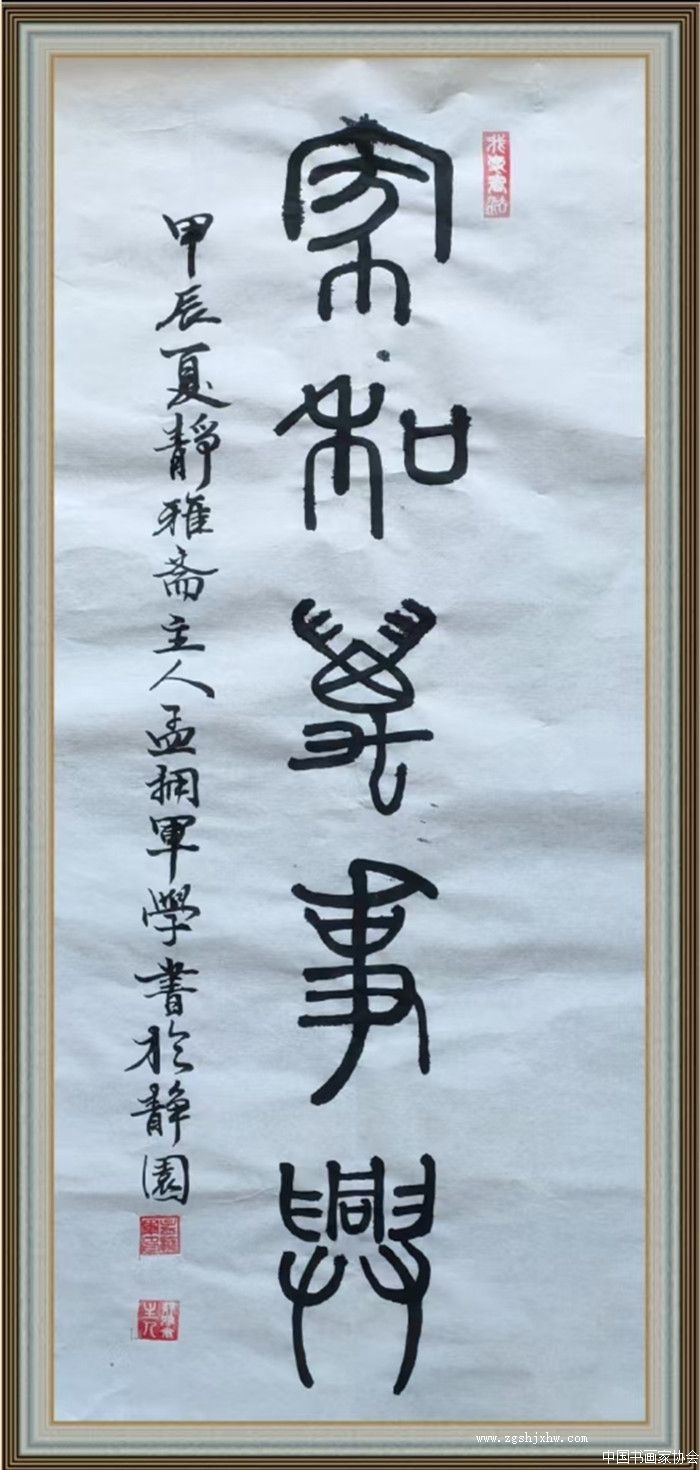 家和萬事興
甲辰夏靜雅斋主人孟拥軍學書於靜園
www.zgshjxhw.com
中国书画家协会